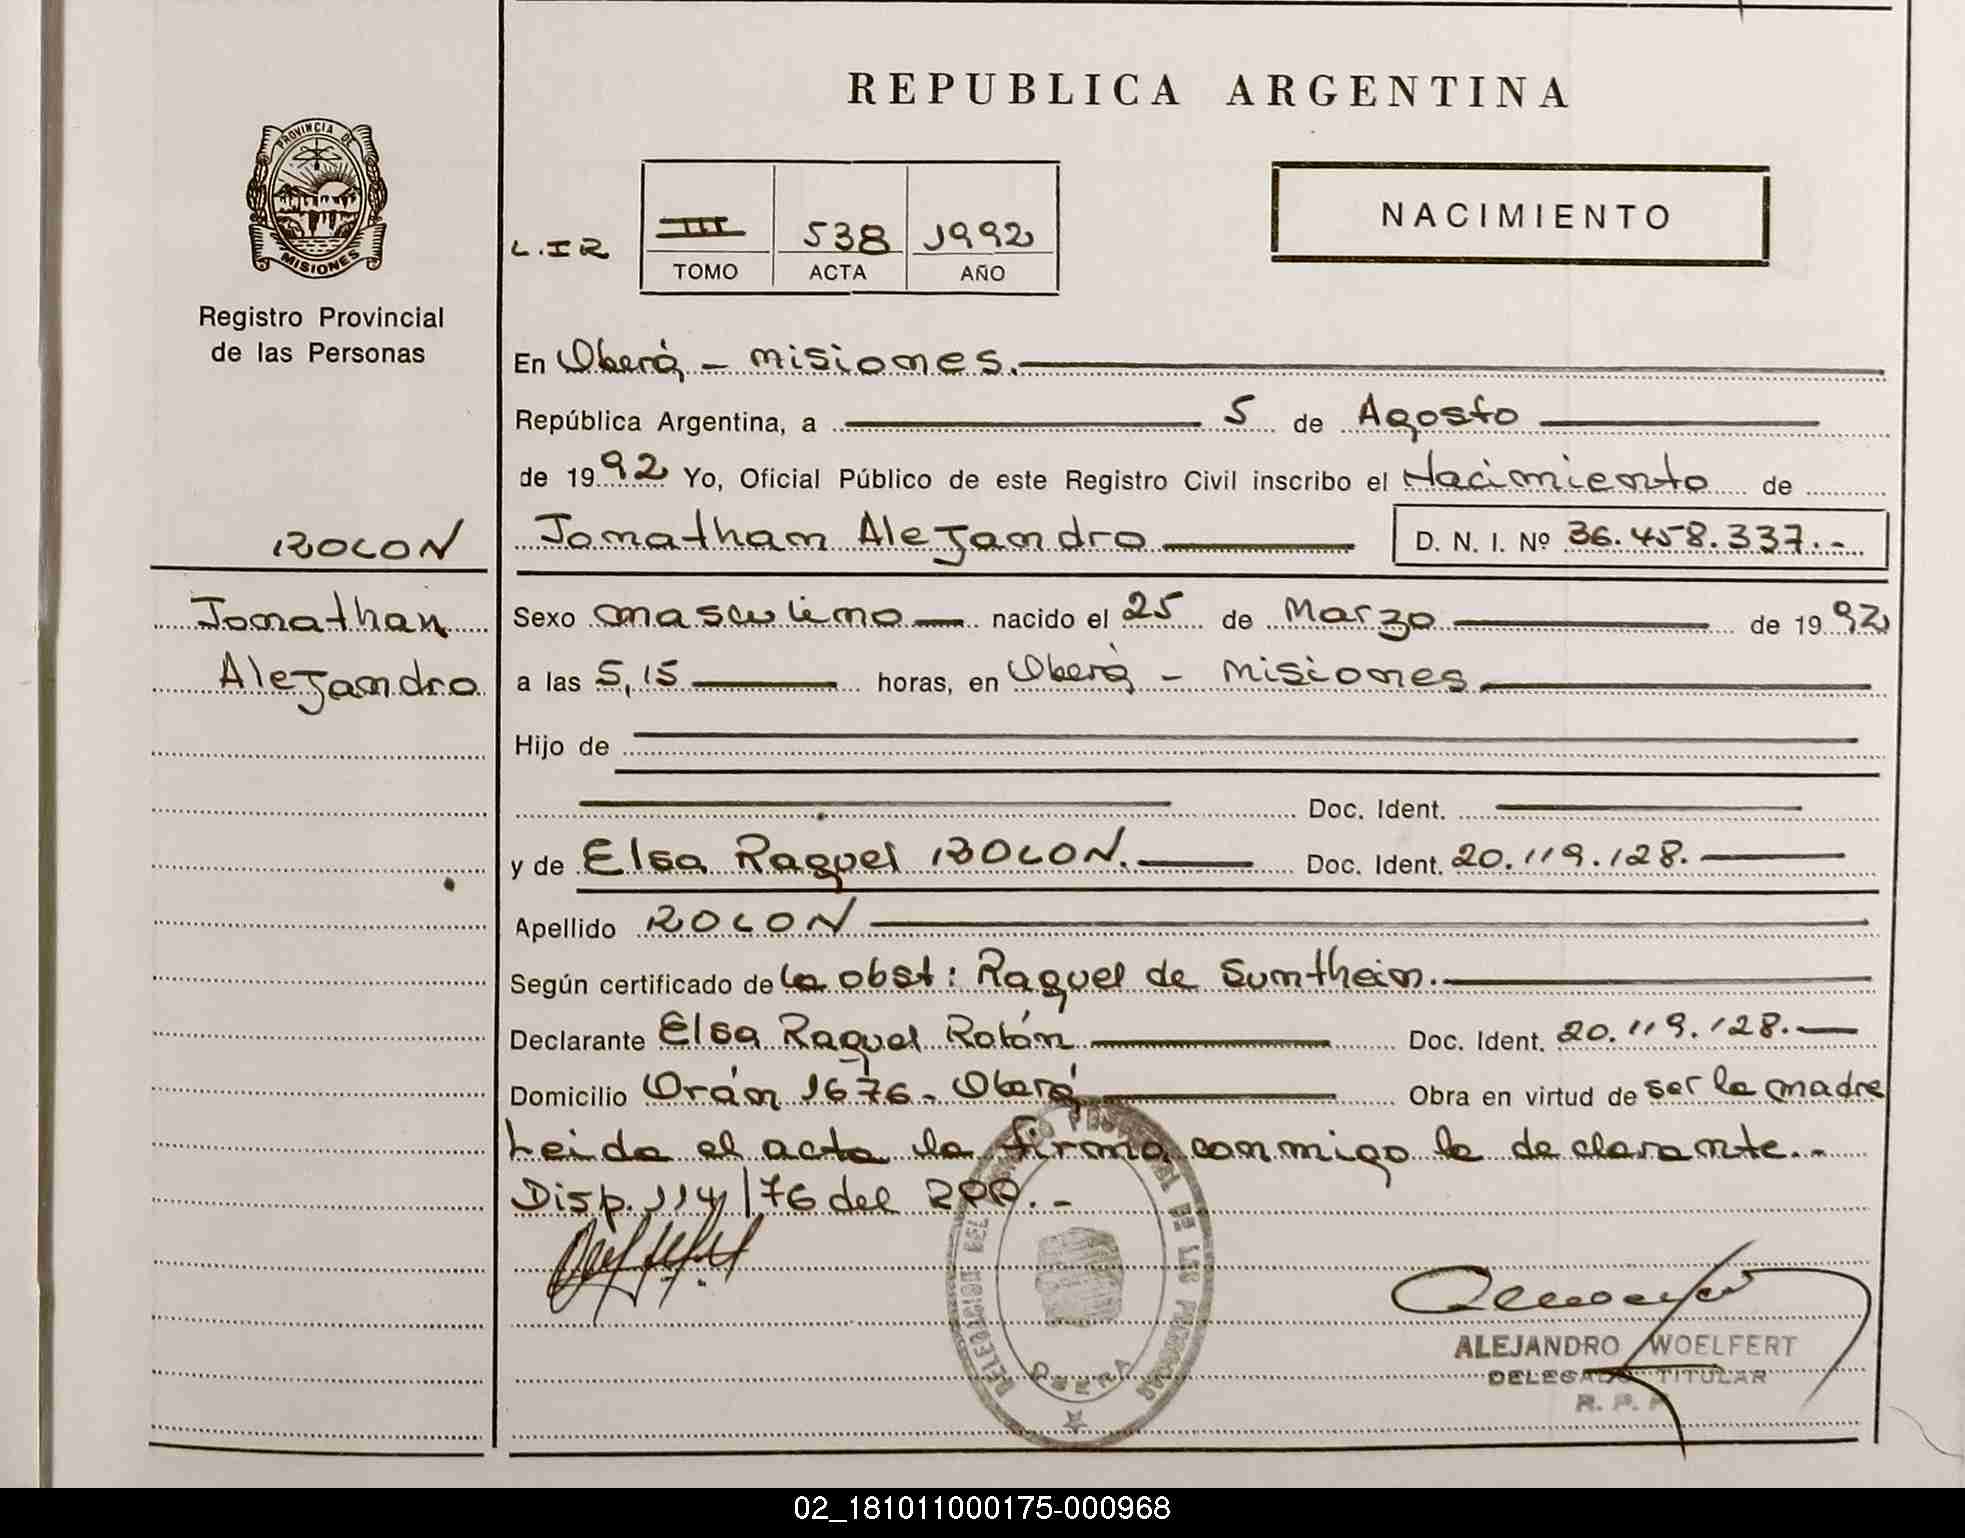 REPUBLICA ARGENTINA
PROVINCIA DE
MISIONES
Registro Provincial
de las Personas
L.IR
III 538 1992
TOMO ACTA AÑO
NACIMIENTO
En Oberá - Misiones.
República Argentina, a 5 de Agosto
de 1992 Yo, Oficial Público de este Registro Civil inscribo el Nacimiento de
ROLON
Jonathan Alejandro D. N. I. Nº 36.458.337.-
Jonathan
Alejandro
Sexo masculino nacido el 25 de Marzo de 1992
a las 5,15 horas, en Oberá - Misiones
Hijo de
Doc. Ident.
y de Elsa Raquel ROLON. Doc. Ident. 20.119.128.
Apellido ROLON
Según certificado de la obst: Raquel de Sunthein.
Declarante Elsa Raquel Rolón Doc. Ident. 20.119.128.
Domicilio Orán 1676 - Oberá Obra en virtud de ser la madre
Leida el acta la firma conmigo la declarante.-
Disp. 114/76 del RPP.-
DELEGACION DEL REGISTRO PROVINCIAL DE LAS PERSONAS
OBERA
ALEJANDRO WOELFERT
DELEGADO TITULAR
R. P. P.
02_181011000175-000968